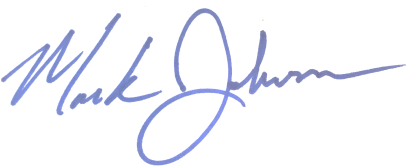 Mark Johnson